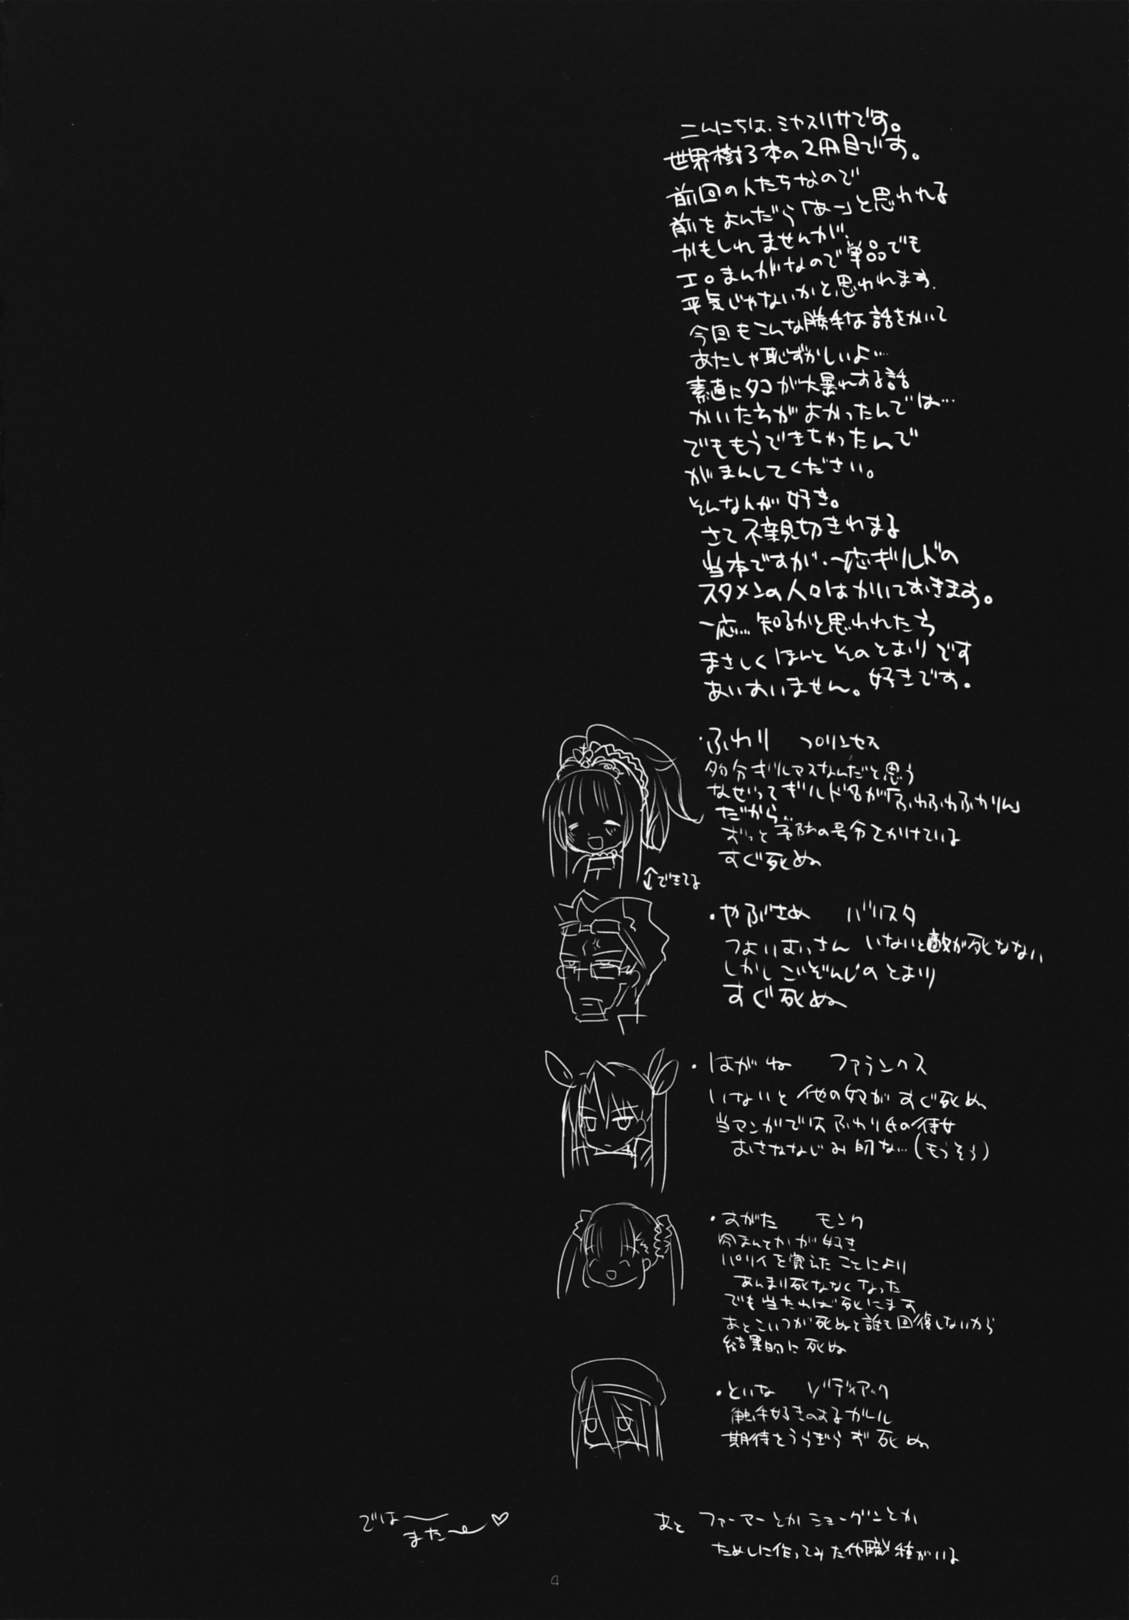 こんにちは、ミヤスリサです。
世界樹3本の2冊目です。
前回の人たちなので
前をよんだら「あー」と思われる
かもしれませんが、
エロまんがなので単品でも
平気じゃないかと思われます。
今回もこんな勝手な話をかいて
あたしゃ恥ずかしいよ…
素直にタコが大暴れする話
かいたらがよかったんでは…
でももうできちゃったんで
がまんしてください。
そんな人が好き。
さて不親切きわまる
当本ですが、一応ギルドの
スタメンの人々はかいておきます。
一応…知るかと思われたら
まさしくほんとそのとおりです
あいすいません。好きです。
・ふわり プリンセス
多分ギルマスなんだと思う
なぜってギルド名が「ふわふわふわりん」
だから…
ずっと予防の号令をかけている
すぐ死ぬ
↕できてる
・やぶさめ バリスタ
つよいおっさん いないと敵が死なない
しかしごぞんじのとおり
すぐ死ぬ
・はがね ファランクス
いないと他の奴がすぐ死ぬ
当マンガではふわり氏の侍女
おさななじみ的な…(もうそう)
・すがた モンク
パリイを覚えたことにより
あんまり死ななくなった
でも当たれば死にます
あとこいつが死ぬと誰も回復しないから
結果的に死ぬ
・といな ゾディアック
触手好きのするガール
期待をうらぎらず死ぬ
あと ファーマーとかショーグンとか
ためしに作ってみた他職種がいる
では〜
また〜♡
4